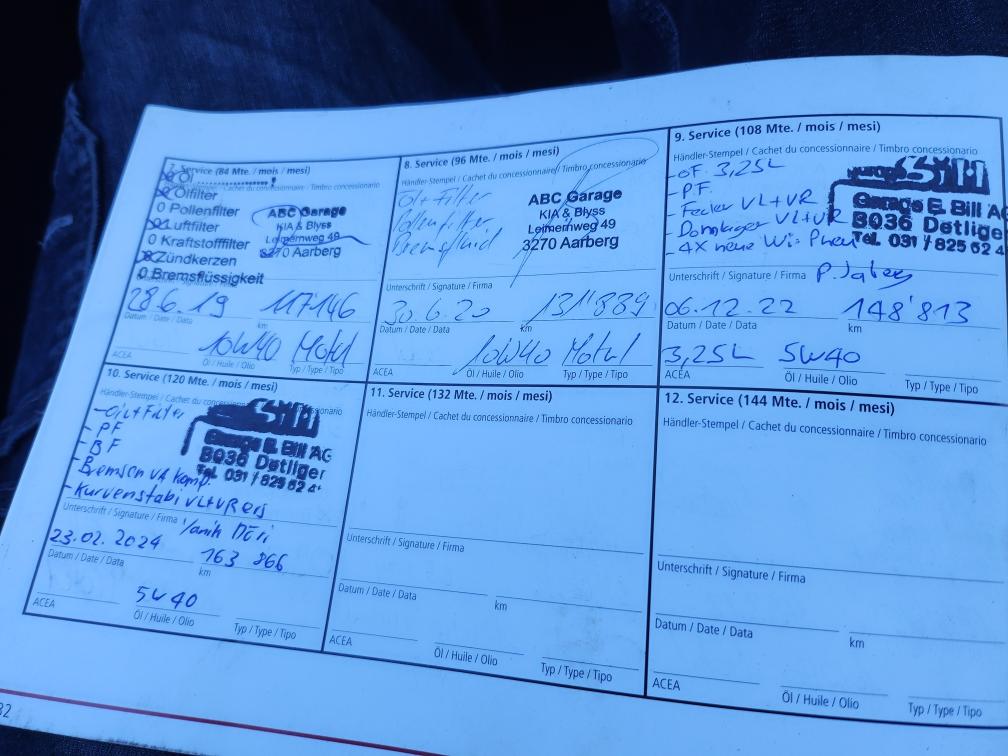 7. Service (84 Mte. / mois / mesi)
Öl
Cachet du concessionnaire / Timbro concessionario
Ölfilter
0 Pollenfilter
Luftfilter
0 Kraftstofffilter
Zündkerzen
0 Bremsflüssigkeit
ABC Garage
KIA & Blyss
Leimernweg 49
3270 Aarberg
28.6.19 117'146
Datum / Date / Data km
10W40 Motul
ACEA Öl / Huile / Olio Typ / Type / Tipo
8. Service (96 Mte. / mois / mesi)
Händler-Stempel / Cachet du concessionnaire / Timbro concessionario
Öl + Filter
Pollenfilter
Bremsfluid
ABC Garage
KIA & Blyss
Leimernweg 49
3270 Aarberg
Unterschrift / Signature / Firma
30.6.20 131'889
Datum / Date / Data km
10W40 Motul
ACEA Öl / Huile / Olio Typ / Type / Tipo
9. Service (108 Mte. / mois / mesi)
Händler-Stempel / Cachet du concessionnaire / Timbro concessionario
- OF 3,25L
- PF.
- Federn VL+VR
- Domlager VL+VR
- 4x neue Wi-Pneu
Garage E. Bill AG
3036 Detlige
Tel. 031 / 825 62 4
Unterschrift / Signature / Firma
06.12.22 148'813
Datum / Date / Data km
3,25L 5W40
ACEA Öl / Huile / Olio Typ / Type / Tipo
10. Service (120 Mte. / mois / mesi)
Händler-Stempel / Cachet du
- Öl+Filter
- PF
- BF
- Bremsen VA komp.
- Kurvenstabi VL+VR ers
Garage E. Bill AG
3036 Detliger
Tel. 031 / 825 62 4
Unterschrift / Signature / Firma
23.02.2024 163 866
Datum / Date / Data km
5W40
ACEA Öl / Huile / Olio Typ / Type / Tipo
11. Service (132 Mte. / mois / mesi)
Händler-Stempel / Cachet du concessionnaire / Timbro concessionario
Unterschrift / Signature / Firma
Datum / Date / Data km
ACEA Öl / Huile / Olio Typ / Type / Tipo
12. Service (144 Mte. / mois / mesi)
Händler-Stempel / Cachet du concessionnaire / Timbro concessionario
Unterschrift / Signature / Firma
Datum / Date / Data km
ACEA Öl / Huile / Olio Typ / Type / Tipo
32